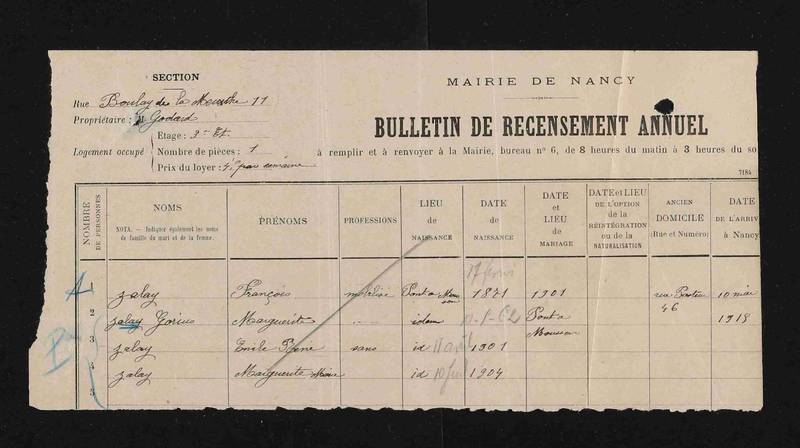 SECTION
Rue Boulay de la Meurthe 11
Propriétaire : Godard
Logement occupé
Etage : 3e Et.
Nombre de pièces : 1
Prix du loyer : par semaine
MAIRIE DE NANCY
BULLETIN DE RECENSEMENT ANNUEL
à remplir et à renvoyer à la Mairie, bureau nº 6, de 8 heures du matin à 3 heures du so
7184
NOMBRE DE PERSONNES
NOMS
NOTA. — Indiquer également les noms de famille du mari et de la femme.
PRÉNOMS
PROFESSIONS
LIEU de NAISSANCE
DATE de NAISSANCE
DATE et LIEU de MARIAGE
DATE et LIEU DE L'OPTION de la RÉINTÉGRATION ou de la NATURALISATION
ANCIEN DOMICILE (Rue et Numéro)
DATE DE L'ARRIV à Nancy
1 Zalay François mobilisé Pont a Mousson 1871 1901 rue 46 10 mai 1915
2 Zalay Gorius Marguerite idem Pont a Mousson
3 Zalay Emile sans id 11 avril 1901
4 Zalay Marguerite Marie id 1904
5